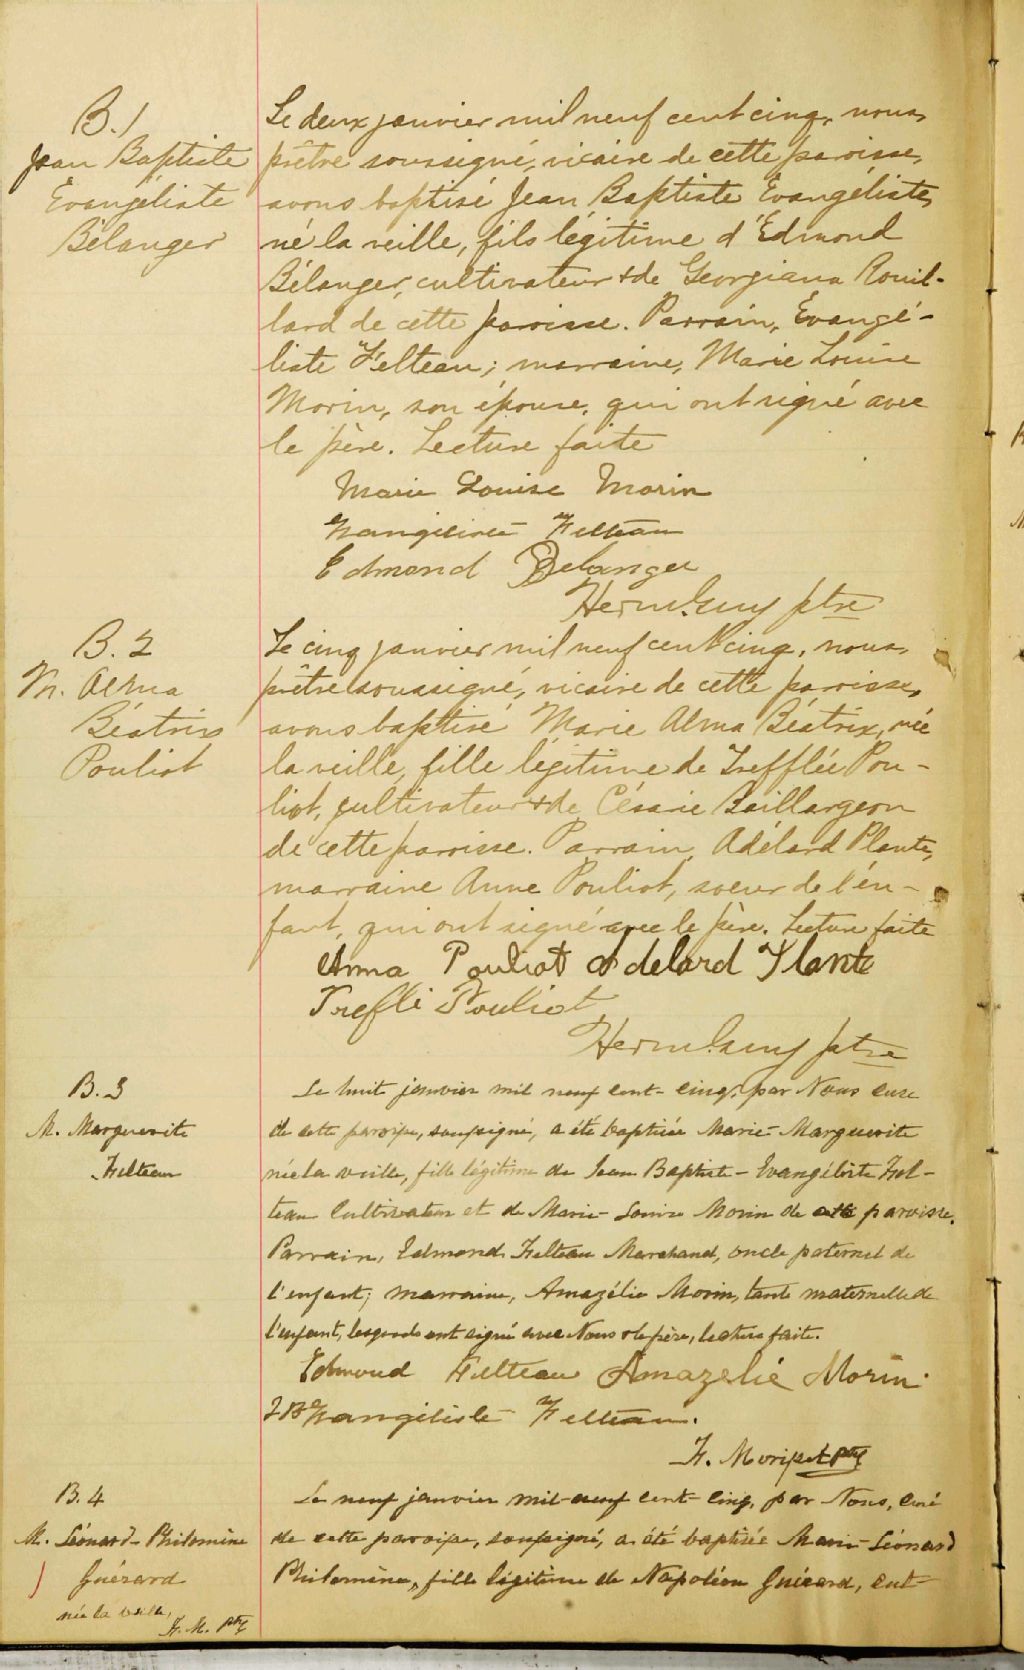 B.1
Jean Baptiste
Évangéliste
Bélanger
Le deux janvier mil neuf cent cinq, nous,
prêtre soussigné, vicaire de cette paroisse,
avons baptisé Jean Baptiste Évangéliste,
né la veille, fils légitime d'Edmond
Bélanger, cultivateur & de Georgiana Rouil-
lard de cette paroisse. Parrain, Évangé-
liste Filteau; marraine, Marie Louise
Morin, son épouse, qui ont signé avec
le père. Lecture faite
Marie Louise Morin
Evangeliste Filteau
Edmond Belanger
Herm. Guy ptre
B. 2
M. Alma
Béatrix
Pouliot
Le cinq janvier mil neuf cent cinq, nous,
prêtre soussigné, vicaire de cette paroisse,
avons baptisé Marie Alma Béatrix, née
la veille, fille légitime de Trefflée Pou-
liot, cultivateur & de Césarie Baillargeon
de cette paroisse. Parrain, Adélard Plante,
marraine Anne Pouliot, soeur de l'en-
fant, qui ont signé avec le père. Lecture faite
Anna Pouliot Adelard Plante
Treflé Pouliot
Herm. Guy ptre
B. 3
M. Marguerite
Filteau
Le huit janvier mil neuf cent-cinq, par Nous curé
de cette paroisse, soussigné, a été baptisée Marie-Marguerite
née la veille, fille légitime de Jean Baptiste-Evangéliste Fil-
teau Cultivateur et de Marie-Louise Morin de cette paroisse.
Parrain, Edmond Filteau Marchand, oncle paternel de
l'enfant; marraine, Amazélie Morin, tante maternelle de
l'enfant, lesquels ont signé avec Nous & le père, lecture faite.
Edmond Filteau Amazelié Morin
J B Evangéliste Filteau.
F. Morisset Ptre
B. 4
M. Léonard-Philomène
Guérard
née la veille,
F. M. Ptre
Le neuf janvier mil-neuf cent-cinq, par Nous, curé
de cette paroisse, soussigné, a été baptisée Marie-Léonard
Philomène, fille légitime de Napoléon Guérard, cul-